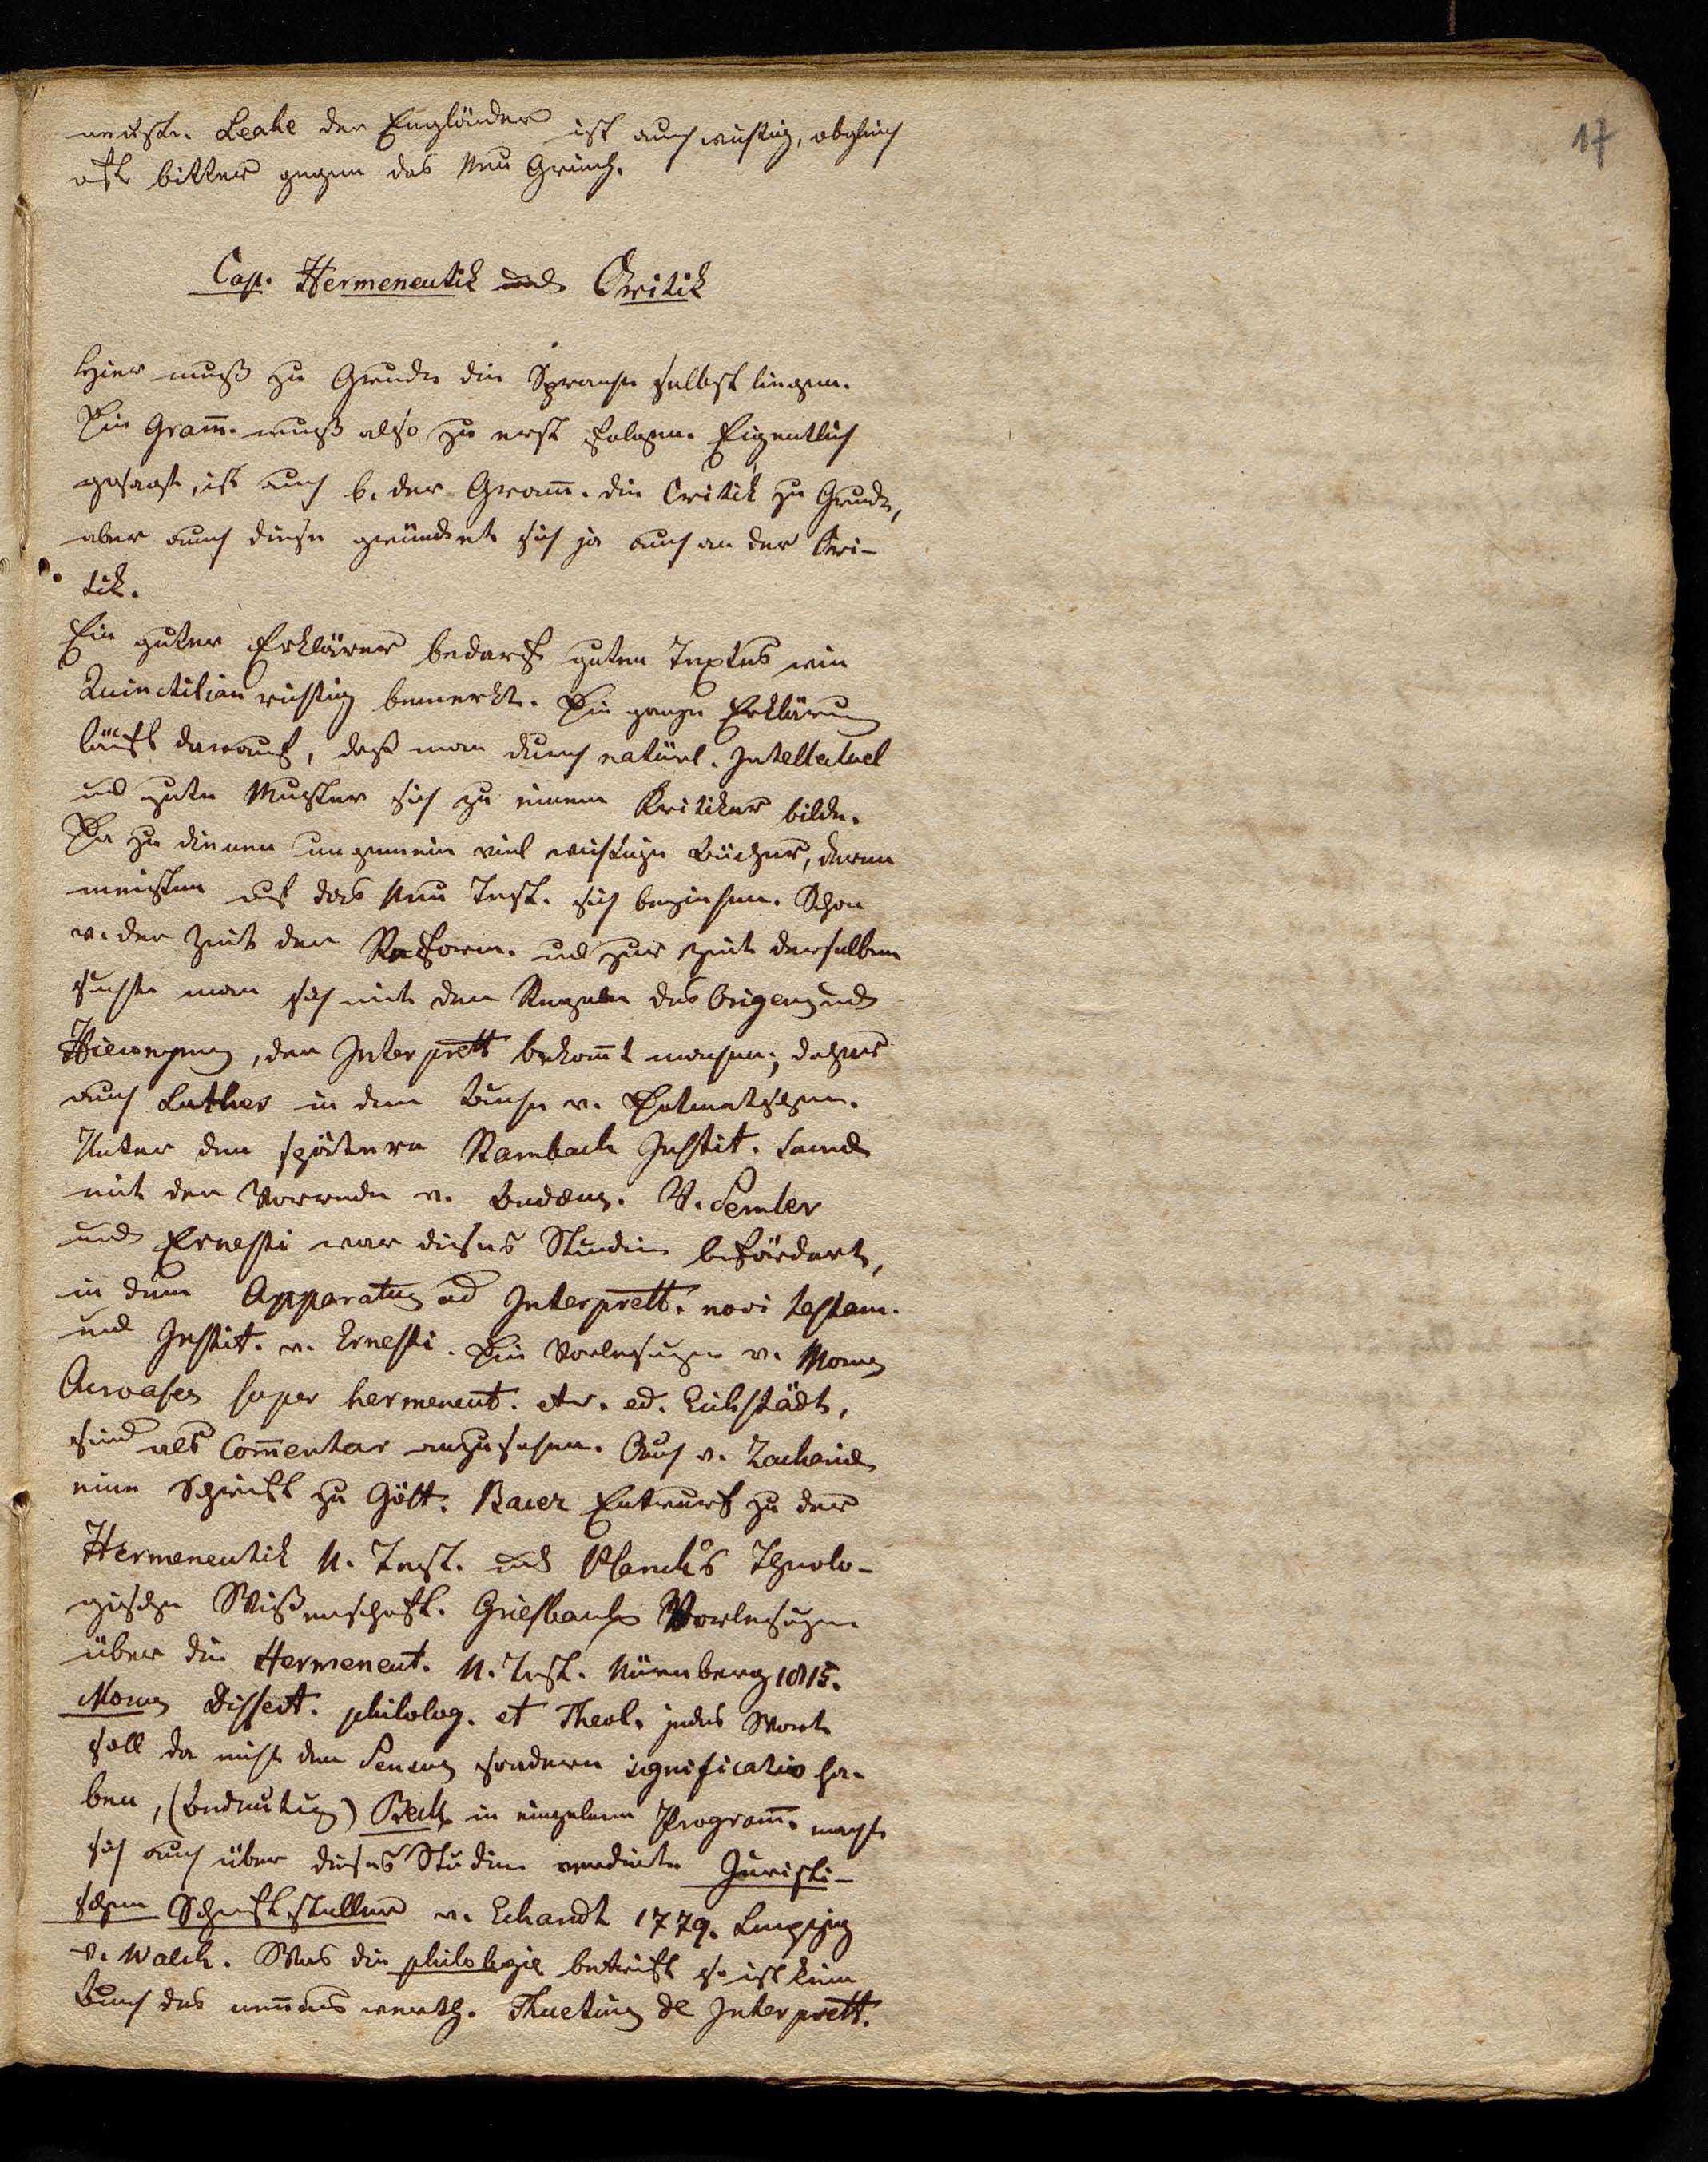 17
Leake der Engländer ist auch wichtig, obgleich
oft bitter gegen das Neu Griech.
Cap. Hermeneutik und Critik
Hier muß zu Grunde die Sprache selbst liegen.
Die Gram̄. muß also zu erst folgen. Eigentlich
gesagt, ist auch b. der Gram̄. die Critik zu Grunde,
aber auch diese gründet sich ja auch an der Cri-
tik.
Ein guter Erklärer bedarf guten Textes wie
Quinctilian richtig bemerkt. Die ganze Erklärung
läuft darauf, daß man durch natürl. Intellectuel
und gute Muster sich zu einem Kritiker bilde.
Da zu dienen ungemein viel wichtige Bücher, deren
meisten auf das Neu Test. sich beziehen. Schon
v. der Zeit der Reform. und zur Zeit derselben
suchte man sich mit den Regeln des Origenes und
Hieronymus, der Interprett bekañt machen; daher
auch Luther in dem Buche v. Dolmetschen.
Unter den spätern Rambach Instit. sacrae
mit der Vorrede v. Buddeus. V. Semler
und Ernesti war dieses Studium befördert,
in dem Apparatus ad Interprett. novi testam.
und Instit. v. Ernesti. Die Vorlesungen v. Morus
Acroases super hermeneut. etc. ed. Eichstädt,
sind als Com̄entar anzusehen. Auch v. Zachariae
eine Schrift zu Gött. Bauer Entwurf zu der
Hermeneutik N. Test. und Planck's Theolo-
gischen Wißenschaft. Griesbachs Vorlesungen
über die Hermeneut. N. Test. Nürnberg 1815.
Morus Dissert. philolog. et Theol. jedes Wort
soll da nicht den Sensus sondern significatio ha-
ben, (Bedeutung) Beck in einzelnen Program̄. machte
sich auch über dieses Studium verdient. Juristi-
schen Schriftsteller v. Eckardt 1779. Leipzig
v. Walch. Was die philologie betrifft so ist kein
Buch des neñens werth. Huetius de Interprett.